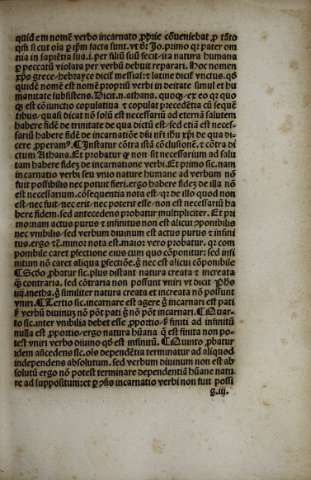 quidē em nomē verbo incarnato ꝓprie cōueniebat ꝓ tāto
qꝛ sicut oīa ꝑ ipm̄ facta sunt. vt dꝛ Jo. primo qꝛ pater om
nia in sapiētia sua. i. per filiū suū fecit. ita natura humana
ꝑ peccatū violata per verbū debuit reparari. Hoc nomen
xp̄s grece. hebrayce dicit͛ messias: et latine dicit͛ vnctus. qd̄
quidē nomē est nomē propriū verbi in deitate simul et hu
manitate subsistens. Dicit. n. athana. quoqꝫ. et io qꝛ quo
qꝫ est cōiunctio copulatiua ⁊ copulat precedētia cū seqūē
tibus. quasi dicat nō solū est necessariū ad eternā salutem
habere fidē de trinitate de qua dictū est. sed etiā est necessa
riū habere fidē de incarnatiōe dn̄i nr̄i ihū xp̄i de qua di
cere ꝓperam⁹. ¶ Instatur cōtra istā cōclusionē. ⁊ cōtra di
ctum Athana. Et probatur ꝙ non sit necessarium ad salu
tem habere fidez de incarnatione verbi. Et primo sic. nam
incarnatio verbi seu vnio nature humane ad verbum nō
fuit possibilis nec potuit fieri. ergo habere fidez de illa nō
est necessarium. cōsequentia nota est. qꝛ de illo quod non
est. nec fuit. nec erit. nec poterit esse. non est necessariū ha
bere fidem. sed antecedens probatur multipliciter. Et pri
mo. nam actus purus ⁊ infinitus non est alicui ꝯponibilis
nec vnibilis. sed verbum diuinum est actus purus ⁊ infini
tus. ergo ⁊c̄. minor nota est. maior vero probatur. qꝛ com
ponibile caret ꝑfectione eius cum quo cōponitur: sed infi
nitum nō caret aliqua ꝑfectiōe. ḡ nec est alicui cōponibile
¶ Scd̄o ꝓbatur sic. plus distant natura creata ⁊ increata
q̄ contraria. sed cōtraria non possunt vniri vt dicit Ph̄s
iiij. metha. ḡ similiter natura creata et increata nō possunt
vniri. ¶ Tertio sic. incarnare est agere ḡ incarnari est pati
ḡ verbū diuinū nō pōt pati ḡ nō pōt incarnari. ¶ Quar
to sic. inter vnibilia debet esse ꝓportio. sed finiti ad infinitū
nulla est ꝓportio. ergo natura hūana q̄ est finita non po
test vniri verbo diuino qd̄ est infinitū. ¶ Quinto ꝓbatur
idem asc̄edens sic. ois depēdētia terminatur ad aliquod
independens absolutum. sed verbum diuinum non est ab
solutū ergo nō pōtest terminare dependentiā hūane natu
re ad suppositum: et ꝑ ꝯñs incarnatio verbi non fuit possi
g. iij.